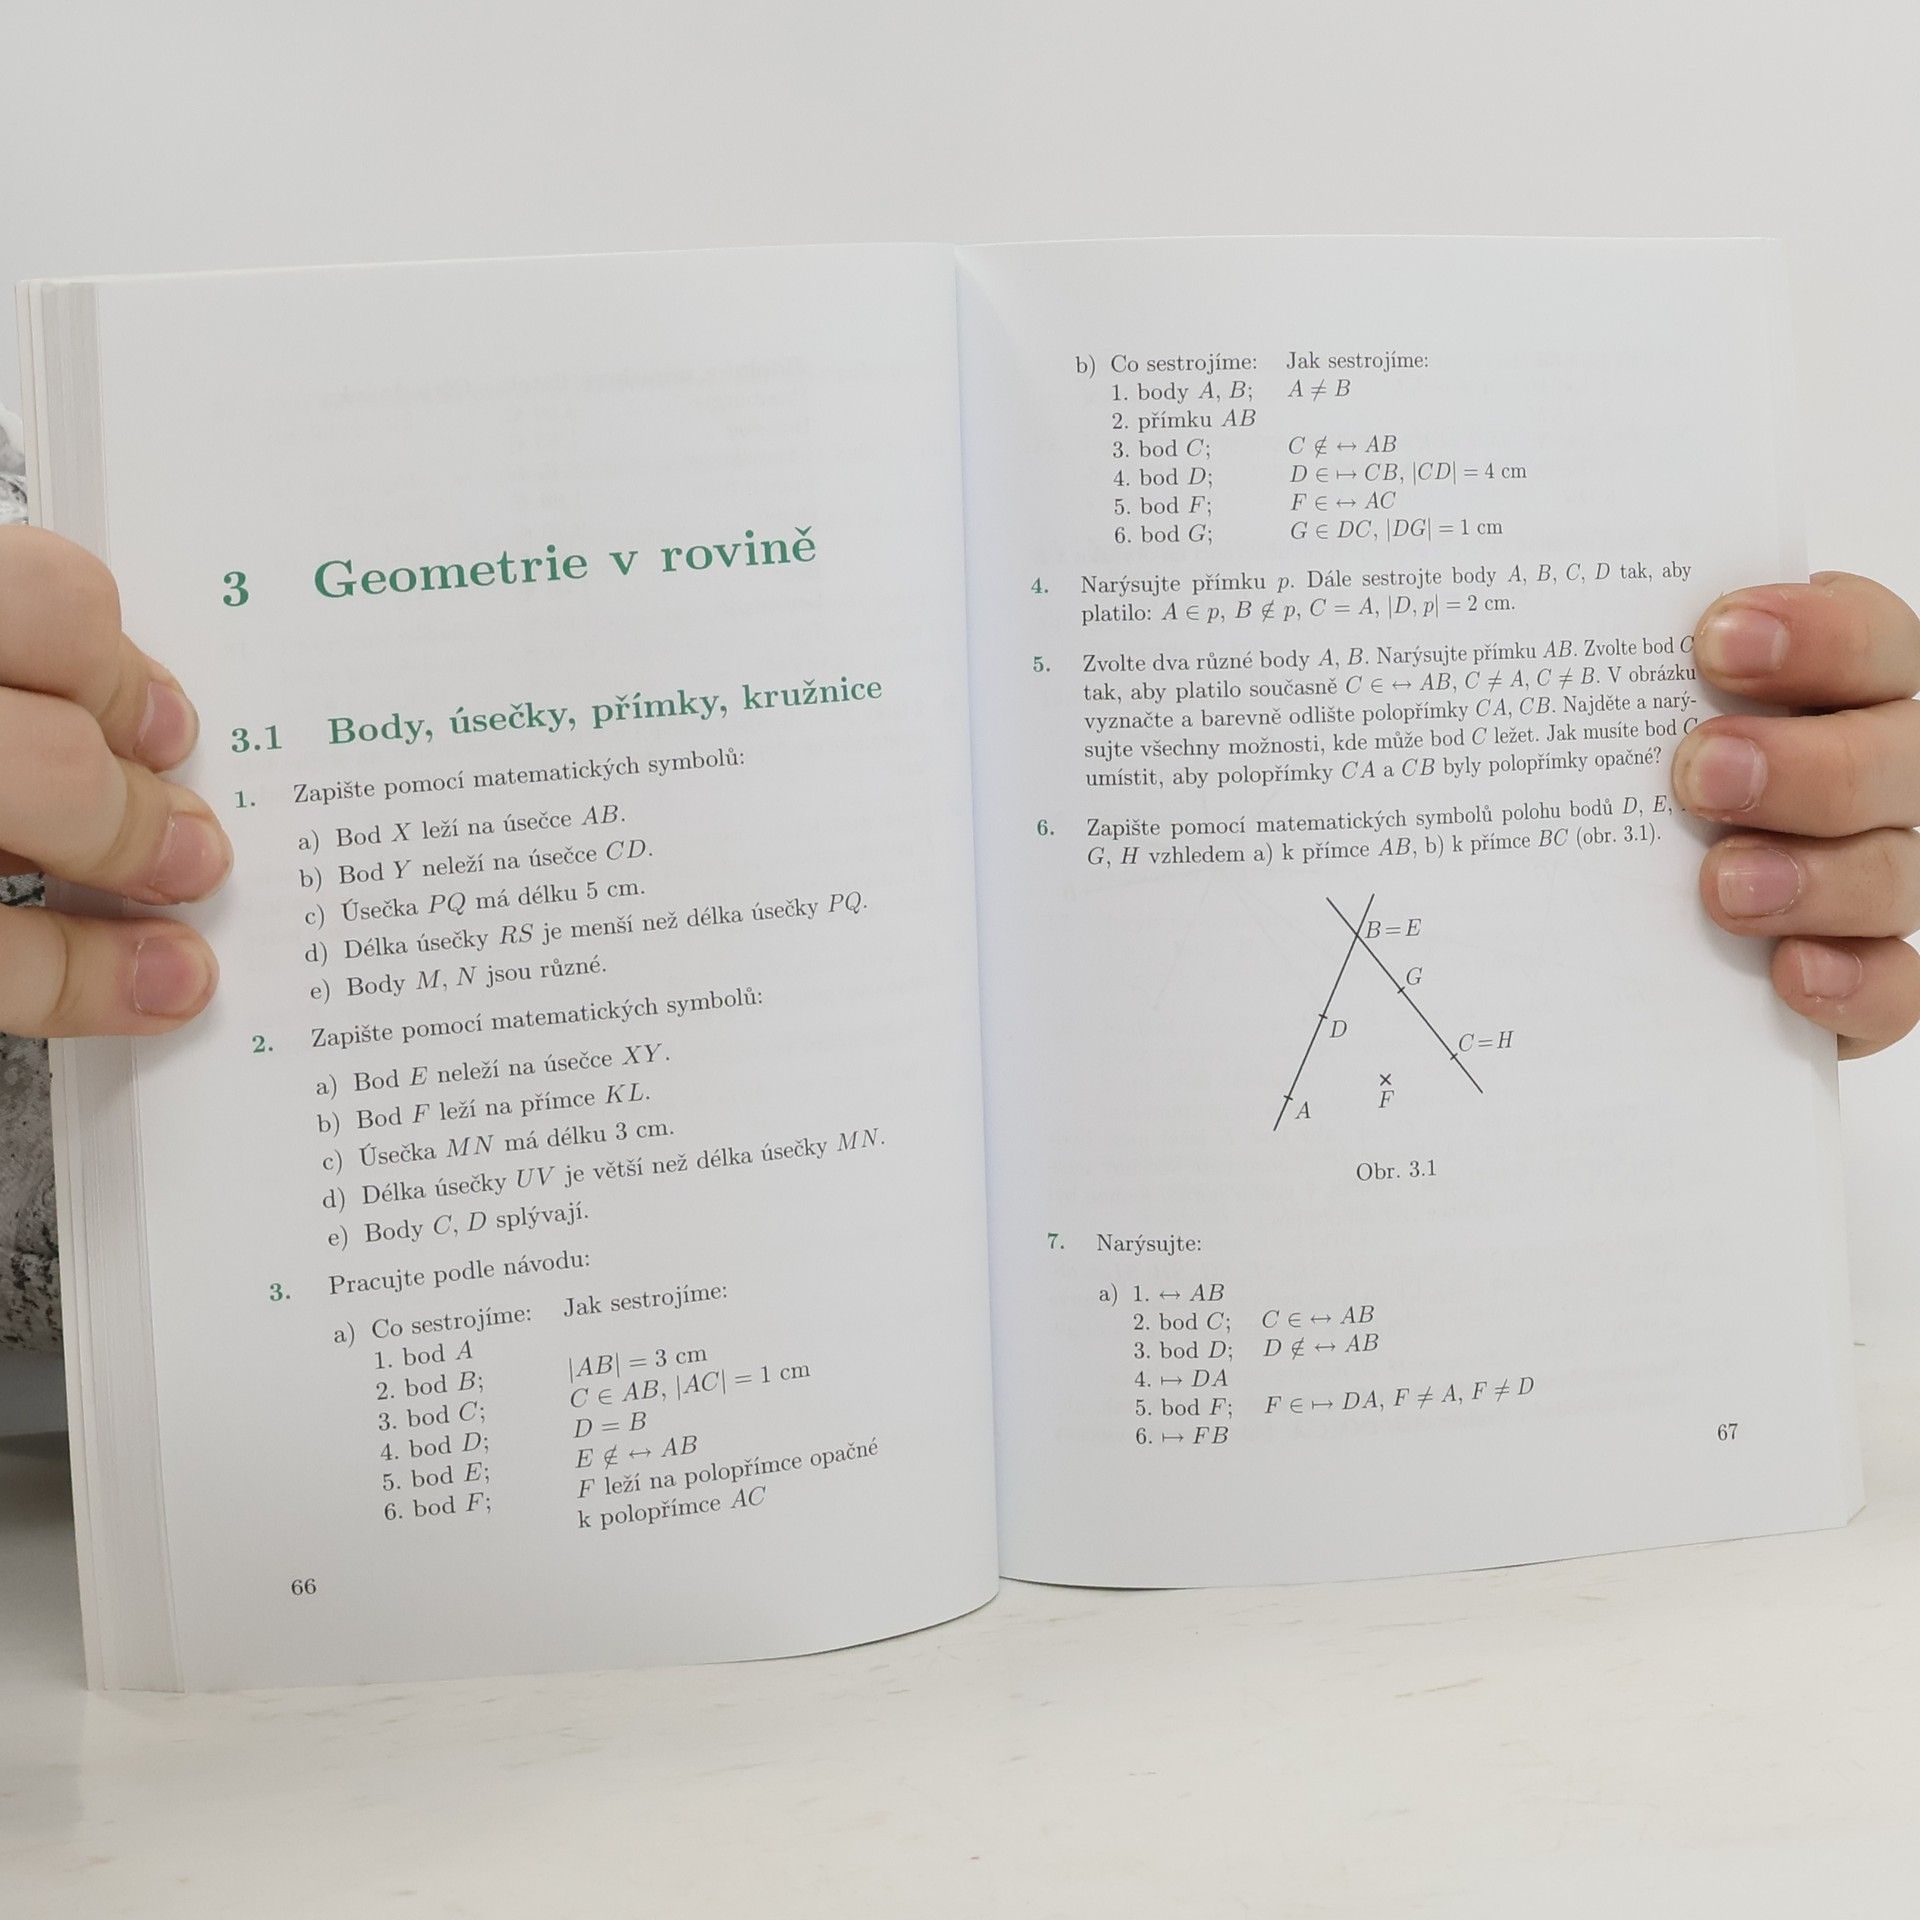 3 Geometrie v rovině
3.1 Body, úsečky, přímky, kružnice
1. Zapište pomocí matematických symbolů:
a) Bod X leží na úsečce AB.
b) Bod Y neleží na úsečce CD.
c) Úsečka PQ má délku 5 cm.
d) Délka úsečky RS je menší než délka úsečky PQ.
e) Body M, N jsou různé.
2. Zapište pomocí matematických symbolů:
a) Bod E neleží na úsečce XY.
b) Bod F leží na přímce KL.
c) Úsečka MN má délku 3 cm.
d) Délka úsečky UV je větší než délka úsečky MN.
e) Body C, D splývají.
3. Pracujte podle návodu:
a) Co sestrojíme: Jak sestrojíme:
1. bod A
2. bod B; |AB| = 3 cm
3. bod C; C ∈ AB, |AC| = 1 cm
4. bod D; D = B
5. bod E; E ∉ ↔ AB
6. bod F; F leží na polopřímce opačné
k polopřímce AC
66
b) Co sestrojíme: Jak sestrojíme:
1. body A, B; A ≠ B
2. přímku AB
3. bod C; C ∉ ↔ AB
4. bod D; D ∈ ↦ CB, |CD| = 4 cm
5. bod F; F ∈ ↔ AC
6. bod G; G ∈ DC, |DG| = 1 cm
4. Narýsujte přímku p. Dále sestrojte body A, B, C, D tak, aby
platilo: A ∈ p, B ∉ p, C = A, |D, p| = 2 cm.
5. Zvolte dva různé body A, B. Narýsujte přímku AB. Zvolte bod C
tak, aby platilo současně C ∈ ↔ AB, C ≠ A, C ≠ B. V obrázku
vyznačte a barevně odlište polopřímky CA, CB. Najděte a narý-
sujte všechny možnosti, kde může bod C ležet. Jak musíte bod C
umístit, aby polopřímky CA a CB byly polopřímky opačné?
6. Zapište pomocí matematických symbolů polohu bodů D, E,
G, H vzhledem a) k přímce AB, b) k přímce BC (obr. 3.1).
B = E
G
D
C = H
F
A
Obr. 3.1
7. Narýsujte:
a) 1. ↔ AB
2. bod C; C ∈ ↔ AB
3. bod D; D ∉ ↔ AB
4. ↦ DA
5. bod F; F ∈ ↦ DA, F ≠ A, F ≠ D
6. ↦ FB
67